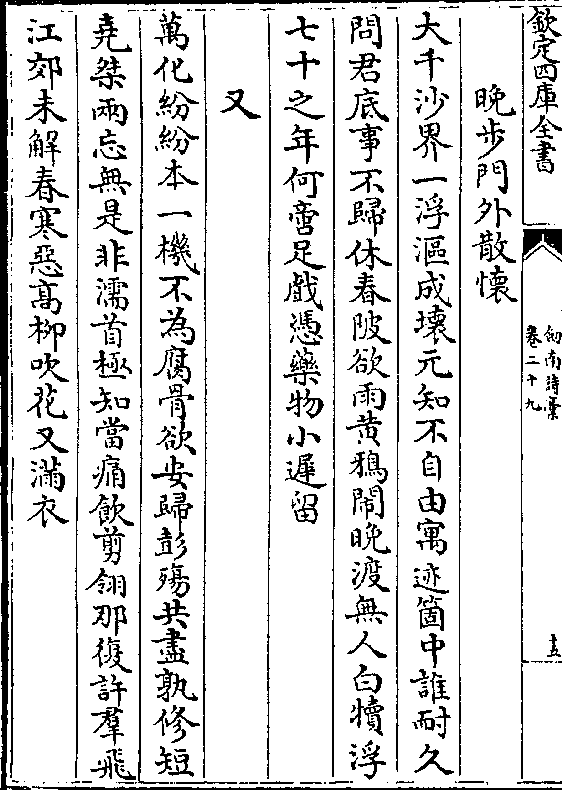 欽定四庫全書
劒南詩稾
卷二十九
十五
晚步門外散懷
大千沙界一浮漚成壞元知不自由寓迹箇中誰耐久
問君底事不歸休春陂欲雨黄鴉閙晚渡無人白犢浮
七十之年何啻足戲憑藥物小遲留
又
萬化紛紛本一機不為腐骨欲安歸彭殤共盡孰修短
堯桀兩忘無是非濡首極知當痛飲剪翎那復許羣飛
江郊未解春寒惡髙柳吹花又滿衣